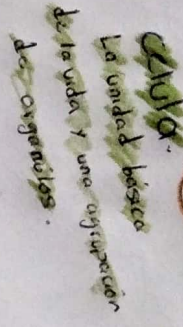 célula.
La unidad básica
de la vida y una agrupación
de organulos.